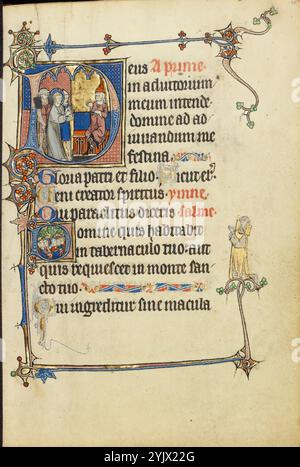 Deus A prime
in adiutorium
meum intende
domine ad ad
iuuandum me
festina.
Gloria patri et filio. Sicut er.
Veni creator spiritus. ymne.
Qui paraclitus diceris. salme
Domine quis habitabit
in tabernaculo tuo: aut
quis requiescet in monte san
cto tuo.
Qui ingreditur sine macula
alamy
Image ID: 2YJX22G
www.alamy.com